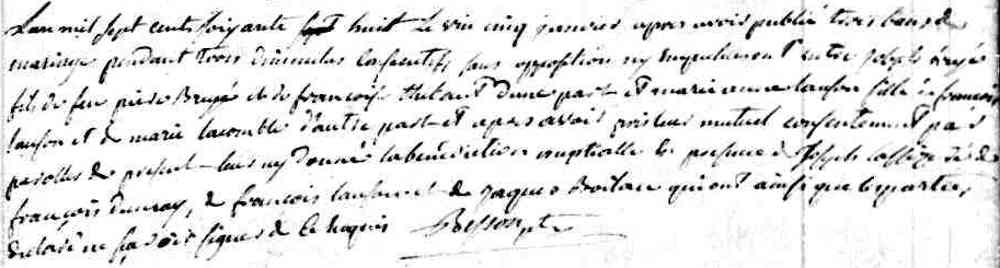 L'an mil sept cents soixante sept huit Le vin cinq janvier apres avoir publié trois bans de
mariage pendant trois dimanches consecutifs sans opposition ny empechement entre joseph
fils de feu piere Brugé et de françoise d'une part et marie anne lanson fille de françois
lanson et de marie lacomble d'autre part et apres avoir pris leur mutuel consentement par
parolles de present leur ay donné la bénédiction nuptialle en presence de joseph de
françois dunray, de francois lanson et de jaques Boilau qui ont ainsi que les parties
declaré ne sçavoir signer de ce requis Besson ptre